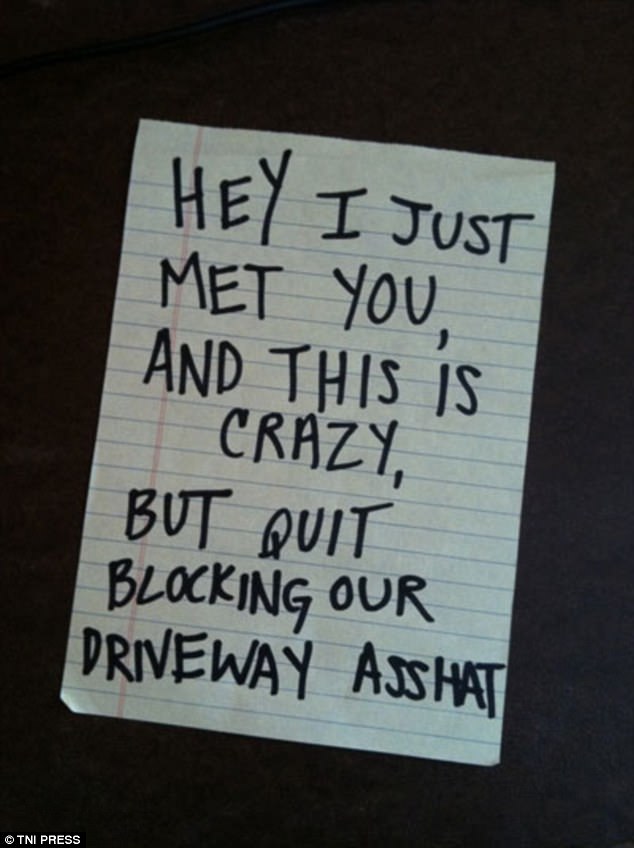 HEY I JUST
MET YOU,
AND THIS IS
CRAZY,
BUT QUIT
BLOCKING OUR
DRIVEWAY ASSHAT
© TNI PRESS